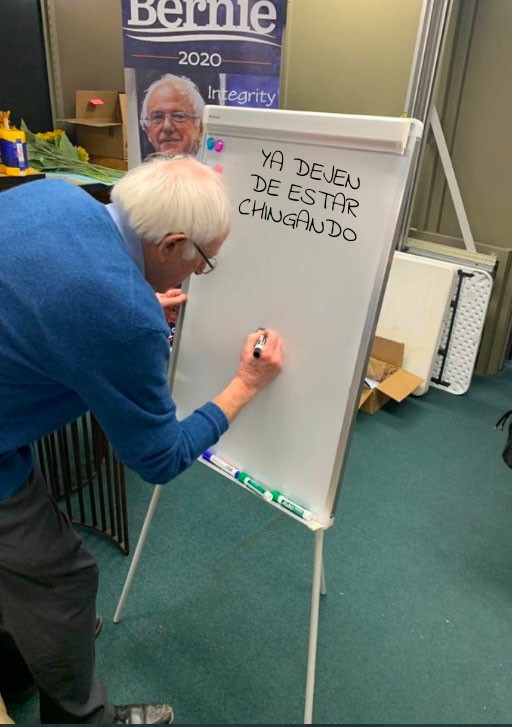 Bernie
2020
Integrity
YA DEJEN
DE ESTAR
CHINGANDO